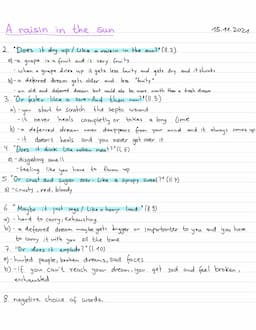 A raisin in the sun 15.11.2021
2. "Does it dry up / Like a raisin in the sun?" (ll. 2)
a) - a grape is a fruit and is very fruity
- when a grape dries up it gets less fruity and gets dry and it shrinks
b) - a deferred dream gets older and less "fruity"
- an old and deferred dream but could also be more worth than a fresh dream
3. "Or fester like a sore - And then run?" (ll. 3)
a) - you start to scratch the septic wound
- it never heals completly or takes a long time
b) - a deferred dream never disappears from your mind and it always comes up
- it doesn't heals and you never get over it
4. "Does it stink like rotten meat?" (l. 6)
- disgusting smell
- feeling like you have to throw up
5. "Or crust and sugar over - Like a syrupy sweet?" (ll. 7)
a) - crusty, red, bloody
6. "Maybe it just sags / Like a heavy load." (ll. 9)
a) - hard to carry, exhausting
b) - a deferred dream maybe gets bigger or importanter to you and you have
to carry it with you all the time
7. "Or does it explode?" (l. 10)
a) - hurted people, broken dreams, sad faces
b) - if you can't reach your dream, you get sad and feel broken,
exhausted
8. negative choice of words.